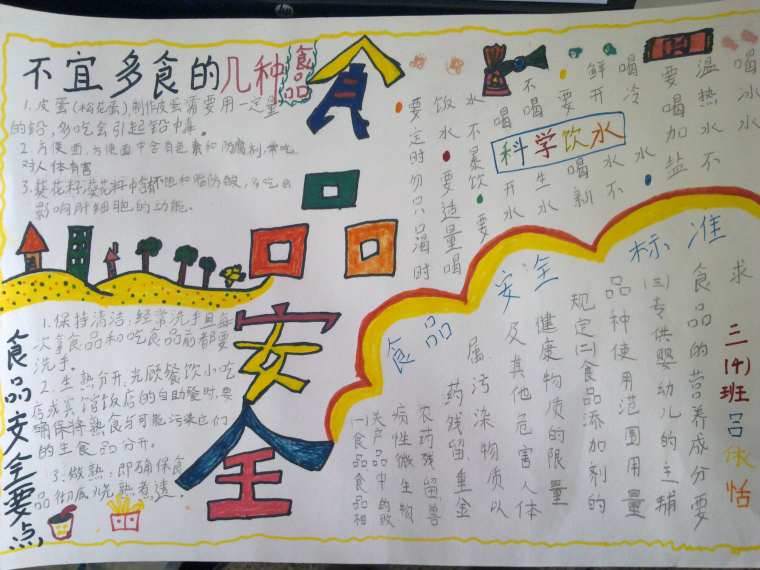 不宜多食的几种食品
1.皮蛋(松花蛋),制作皮蛋需要用一定量
的铅,多吃会引起铅中毒。
2.方便面,方便面中含有色素和防腐剂,常吃
对人体有害
3.葵花籽,葵花籽中含不饱和脂肪酸,多吃会
影响肝细胞的功能。
食品安全
科学饮水
要定时勿只渴时
饮水
要适量喝
水不暴饮
要
喝开水
不喝生水
要喝新
鲜开水不
喝冷水
要喝加盐
温热水不
喝冰水
食品安全要点
1.保持清洁,经常洗手且每
次拿食品和吃食品前都要
洗手。
2.生熟分开,光顾餐饮小吃
店或宾馆饭店的自助餐时,要
确保将熟食与可能污染它们
的生食品分开。
3.做熟:即确保食
品彻底烧熟煮透。
食品安全标准
(一)食品食品相
关产品中的致
病性微生物
农药残留兽
药残留重金
属污染物质以
及其他危害人体
健康物质的限量
规定(二)食品添加剂的
品种使用范围用量
(三)专供婴幼儿的主辅
食品的营养成分要
求
二(4)班吕恬